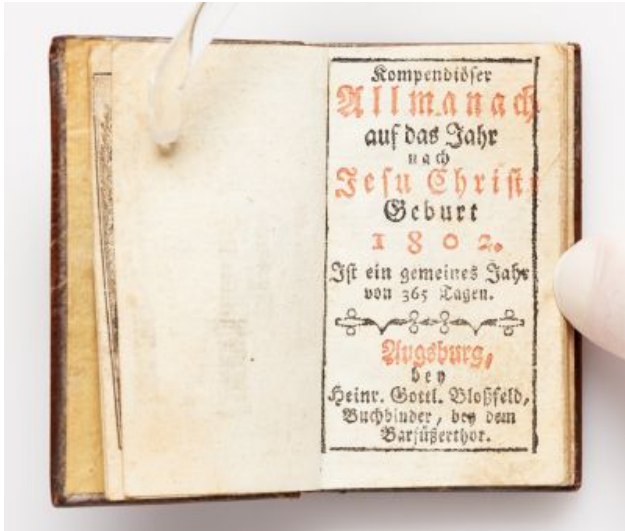 Kompendiöser
Allmanach
auf das Jahr
nach
Jesu Christi
Geburt
1802.
Ist ein gemeines Jahr
von 365 Tagen.
Augsburg,
bey
Heinr. Gottl. Bloßfeld,
Buchbinder, bey dem
Barfüßerthor.